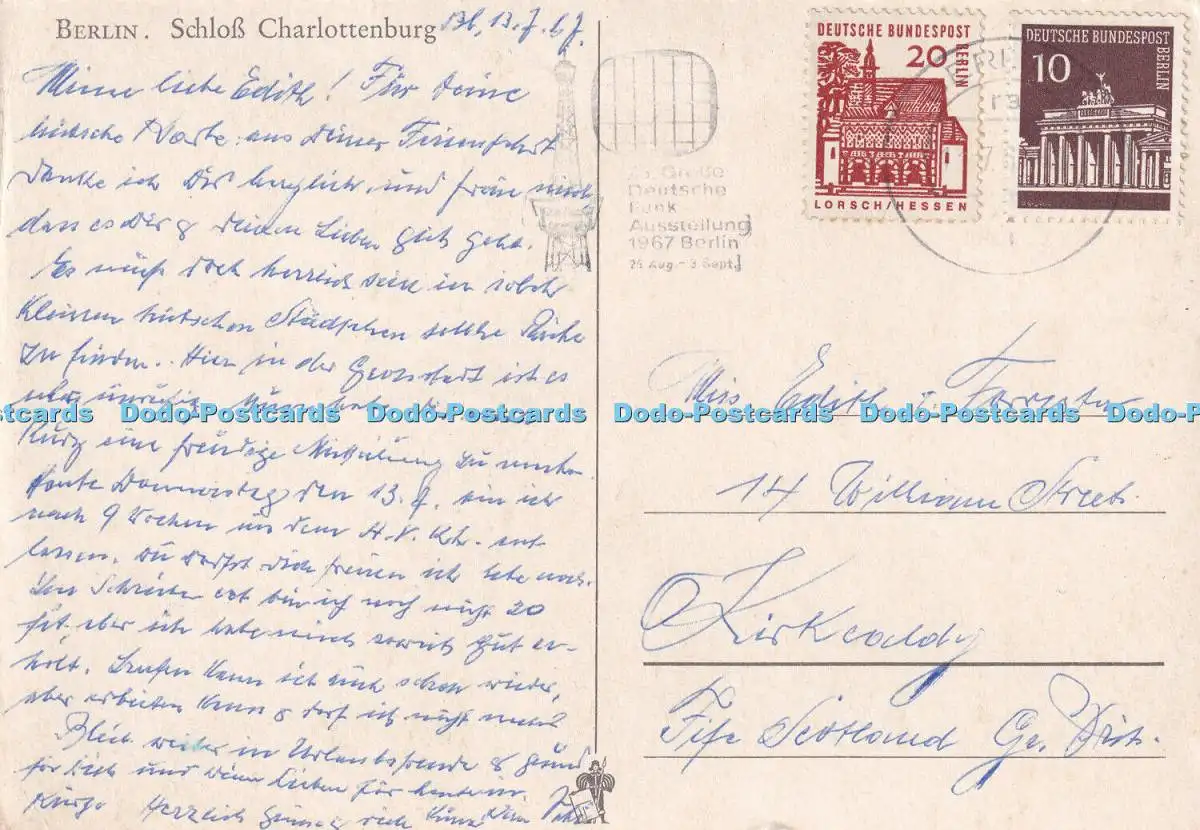 BERLIN. Schloß Charlottenburg
Bl, 13.7.67.
Meine liebe Edith! Für Deine
hübsche Karte aus Deiner Ferienfahrt
danke ich Dir herzlich, und freue mich,
dass es Dir & Deinen Lieben gut geht.
Es muß doch herrlich sein in solch
kleinen hübschen Städtchen solche Ruhe
zu finden. Hier in der Grosstadt ist es
kurz eine freudige Mitteilung zu machen
Heute Donnerstag den 13.7. bin ich
nach 9 Wochen aus dem Krh. ent-
lassen. Du darfst Dich freuen ich lebe noch.
Im Schreiben bin ich noch nicht so
fit, aber ich habe mich soweit gut er-
holt. Laufen kann ich auch schon wieder,
aber arbeiten kann & darf ich nicht mehr
Bleib weiter in Urlaubsfreude & gesund
für Dich und Deine Lieben für heute in
Kürze Herzlich
25. Große
Deutsche
Funk
Ausstellung
1967 Berlin
25 Aug.-3 Sept.
DEUTSCHE BUNDESPOST
20
BERLIN
LORSCH/HESSEN
DEUTSCHE BUNDESPOST
10
BERLIN
Miss Edith Forrester
14 William Street.
Kirkcaldy
Fife Scotland Gr. Brit.
Dodo-Postcards Dodo-Postcards Dodo-Postcards Dodo-Postcards Dodo-Postcards